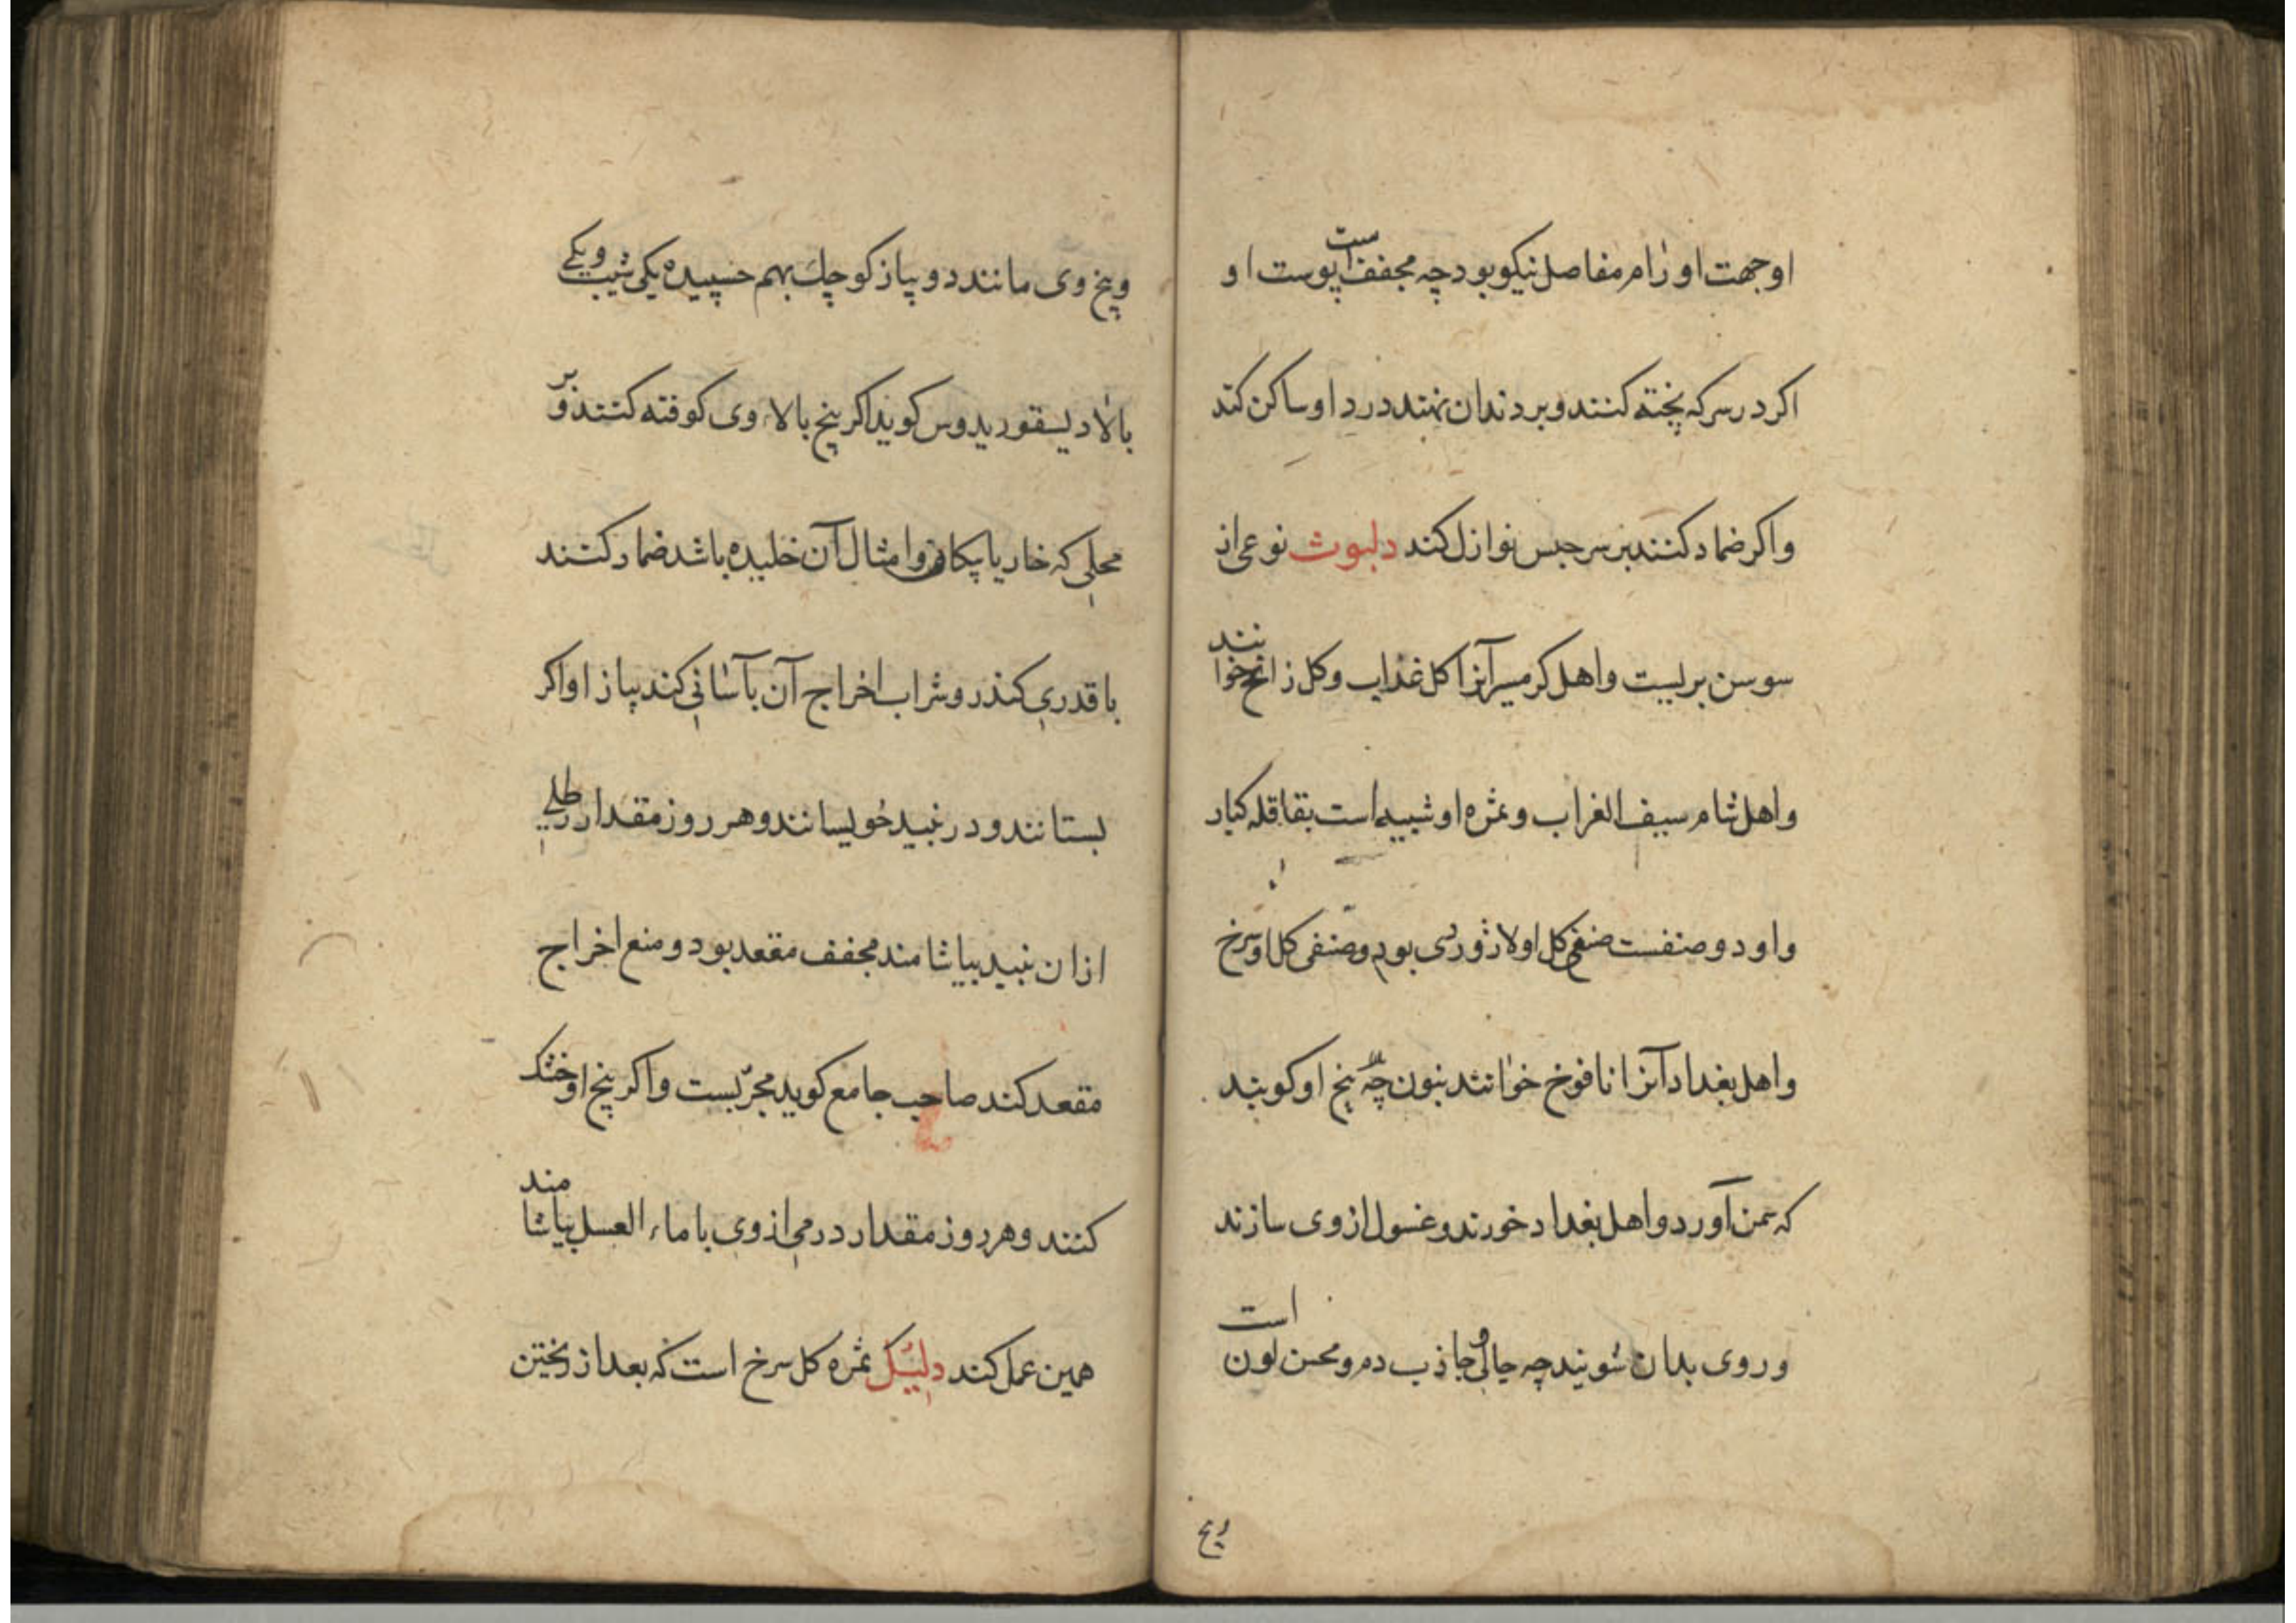 او جهت اورام مفاصل نیکو بود چه مجفف است پوست او
اکر در سرکه پخته کنند و بر دندان نهند درد او ساکن کند
واکر ضماد کنند بر سر حبس نوازل کند دلبوث نوعی از
سوسن بریست واهل کرمسیر آنرا کل غداب وکل زاغ خوانند
واهل شام سیف الغراب و ثمره او شبیه است بقاقله کبار
واو دو صنفست صنفی کل او لاژوردی بود وصنفی کل او سرخ
واهل بغداد آنرا نافوخ خوانند بنون چه بیخ او کویند
که سمن آورد واهل بغداد خورند وغسول از وی سازند
وروی بدان شویند چه جالی وجاذب دم ومحسن لون است
وبیخ
وبیخ وی مانند دو پیاز کوچک بهم حسپیده یکی شیب ویکی
بالا دیسقوریدوس کوید اکر بیخ بالاء وی کوفته کنند و بر
محلی که خار یا پیکان وامثال آن خلیده باشد ضماد کنند
با قدری کندر وشراب اخراج آن بآسانی کند پیاز او اکر
بستانند ودر نبید خویسانند وهر روز مقدار رطلی
ازان نبید بیاشامند مجفف مقعد بود ومنع اخراج
مقعد کند صاحب جامع کوید مجربست واکر بیخ او خشک
کنند وهر روز مقدار درمی از وی با ماء العسل بیاشامند
همین عمل کند دلیک ثمره کل سرخ است که بعد از ریختن